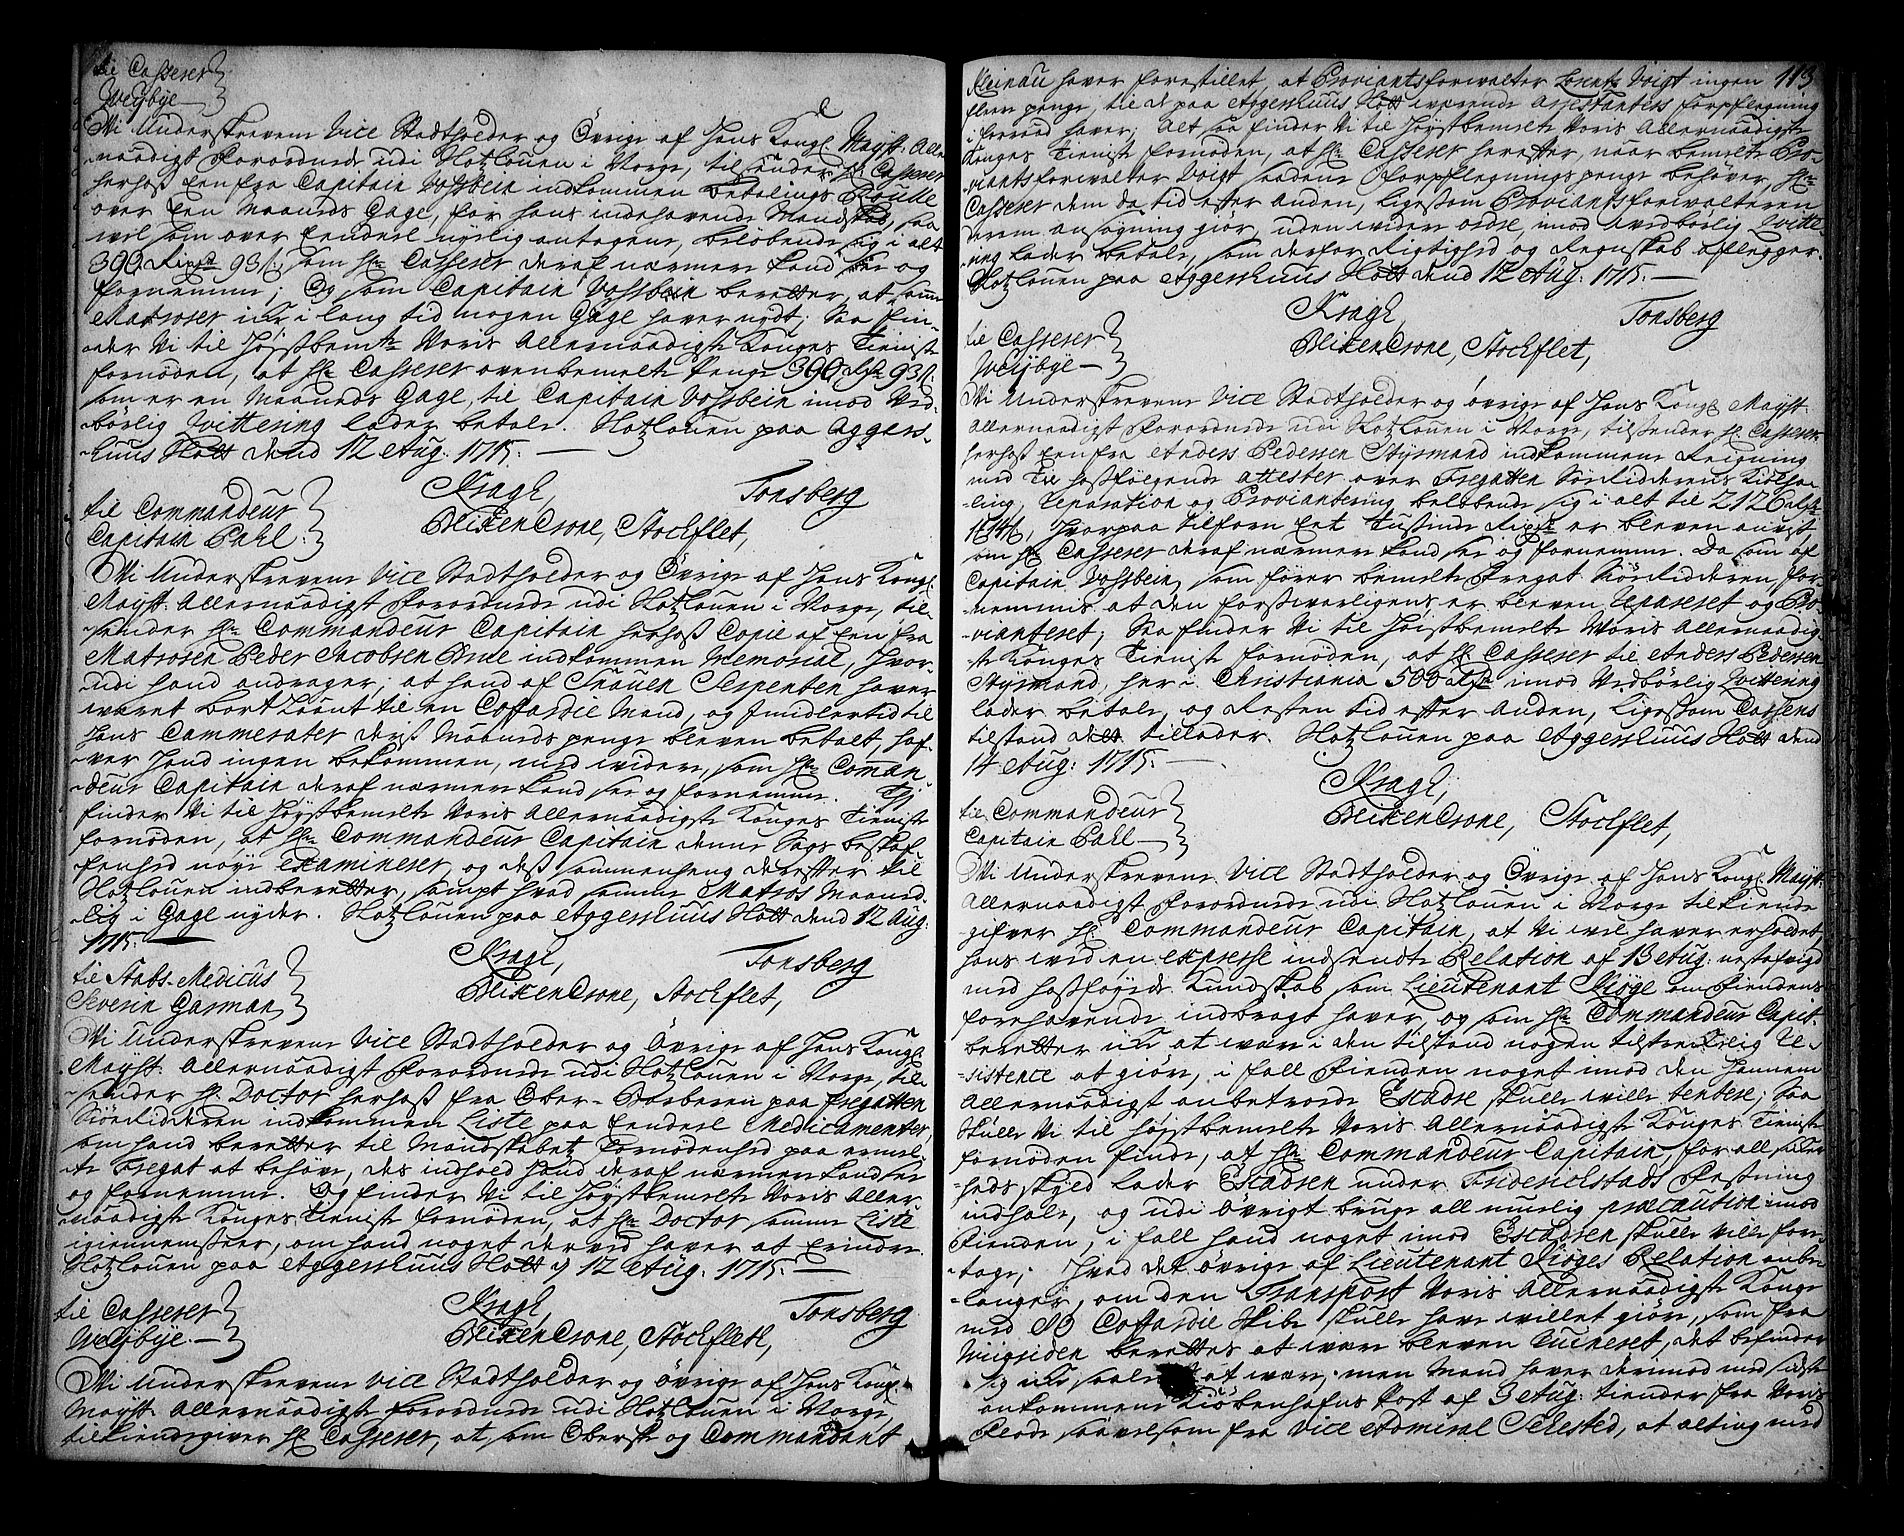 til Casserer
Weybye
Wi Underskrevene Vice Stadtholder og Øvrige af Hans Kongl. Mayst. Aller-
naadigst Forordnede udi Slotzlouen i Norge, tilsender hr. Casserer
herhos een fra Capitain Vosbein indkommen betalings Roulle
over een Maaneds Gage, for hans indehavende Mandskab, saa
vel som over Eendeel nylig antagene, beløbende sig i alt
390 Rixdr 93 s, som hr. Casserer deraf nærmere kand see og
fornemme; Og som Capitain Vosbein beretter, at samme
Matroser icke i lang tid nogen Gage haver nydt; Saa fin-
der Wi til Høystbemte Voris Allernaadigste Konges Tieniste
fornøden, at hr. Casserer ovenbemelte penge 390 Rdr 93 s.
som er en Maaneds Gage, til Capitain Vosbein imod Ved-
børlig Qvittering lader betale. Slotzlouen paa Aggers-
huus Slott dend 12 Aug. 1715.
Kragh, Tonsberg
BlixenCrone, Stockflet,
til Commandeur
Capitain Pahl.
Wi Underskrevene Vice Stadtholder og Øvrige af Hans Kongl.
Mayst. Allernaadigst Forordnede udi Slotzlouen i Norge, til-
sender hr. Commandeur Capitain herhos Copie af een fra
Matrosen Peder Jacobsen Brue indkommen Memorial, hvor-
udi hand andrager, at hand af Snauen Serpenten haver
været bort laant til en Cofardie Mand, og Imidlertid til
hans Cammerater deris Maaneds penge bleven betalt, haf-
ver hand ingen bekommen, med widere, som hr. Comman-
deur Capitain deraf nærmere kand see og fornemme. Thj
finder Wi til Høystbemelte Voris Allernaadigste Konges Tieniste
fornøden, at hr. Commandeur Capitain denne Sags beskaf-
fenhed nøye examinerer, og dets sammenheng derefter til
Slotzlouen indberetter, sampt hvad samme Matros Maaned-
lig i Gage nyder. Slotzlouen paa Aggershuus Slott dend 12 Aug.
1715.
Kragh, Tonsberg
BlixenCrone, Stockflet,
til Stabs-Medicus
Severin Garman
Wi Underskrevene Vice Stadtholder og Øvrige af Hans Kongl.
Mayst. Allernaadigst Forordnede udi Slotzlouen i Norge, til-
sender hr. Doctor herhos fra Ober-Barberen paa Fregatten
Siøridderen indkommen Liste paa Eendeel Medicamenter,
som hand beretter til Mandskabets Fornødenhed paa bemel-
te Fregat at behøve, des indhold hand deraf nærmere kand see
og fornemme. Og finder Wi til Høystbemelte Voris Aller-
naadigste Konges Tieniste fornøden, at hr. Doctor samme Liste
igiennemseer, om hand noget derved haver at Erindre.
Slotzlouen paa Aggershuus Slott d 12 Aug. 1715.
Kragh, Tonsberg
BlixenCrone, Stockflet,
til Casserer
Weybye.
Wi Underskrevene Vice Stadtholder og øvrige af Hans Kongl.
Mayst. Allernaadigst Forordnede udi Slotzlouen i Norge,
tilkiendegiver hr. Casserer, at, som Oberst og Commandant
113
Kleinau haver forestillet, at Proviantsforwalter Lorentz Voigt ingen
fleere penge, til de paa Aggershuus Slott værende Arrestanters forpflegning
i forraad haver; Alt saa finder Wi til Høystbemelte Voris Allernaadigste
Konges Tieniste fornøden, at hr. Casserer herefter, naar bemelte Pro-
viantsforwalter Voigt saadane Forpflegnings penge behøver, hr.
Casserer dem da tid efter anden, ligesom Proviantsforwalteren
derom ansøgning giør, uden widere ordre, imod vedbørlig Qvitte-
ring lader betale, som derfor Rigtighed og Regnskab aflegger.
Slotzlouen paa Aggershuus Slott dend 12 Aug. 1715.
Kragh, Tonsberg
BlixenCrone, Stockflet,
til Casserer
Weybye
Wi Underskrevene Vice Stadtholder og øvrige af Hans Kongl. Mayst.
Allernaadigst Forordnede udi Slotzlouen i Norge, tilsender hr. Casserer
herhos een fra Anders Pedersen Styrmand indkommen Reigning
med Til hosfølgende attester over Fregatten Siøridderens Kiølha-
ling, Reparation og Proviantering beløbende sig i alt til 2126 Rdr
16 s, hvorpaa tilforn Eet Tusinde Rixdr er bleven anvist,
som hr. Casserer deraf nærmere kand see og fornemme. Da som af
Capitain Vosbein, som fører bemelte Fregat Siøridderen, for-
nemmis at den forsvarligens er bleven Repareret og Pro-
vianteret; Saa finder Wi til Høystbemelte Voris Allernaadig-
ste Konges Tieniste fornøden, at hr. Casserer til Anders Pedersen
Styrmand, her i Christiania 500 Rdr imod Vedbørlig Qvittering
lader betale, og Resten tid efter anden, ligesom Cassens
tilstand dett tillader. Slotzlouen paa Aggershuus Slott dend
14 Aug. 1715.
Kragh,
BlixenCrone, Stockflet,
til Commandeur
Capitain Pahl
Wi Underskrevene Vice Stadtholder og Øvrige af Hans Kongl. Mayst.
Allernaadigst Forordnede udi Slotzlouen i Norge tilkiende-
gifver hr. Commandeur Capitain, at Wi vel haver erholdet,
hans wed en expresse indsendte Relation af 13 Aug. nestafvigt
med hosføyede Kundskab som Lieutenant Kiøge om Fiendens
forehavende indbragt haver, og som hr. Commandeur Capit.
beretter icke at være i den tilstand nogen tilstreckelig Re-
sistence at giøre, i fall Fienden noget imod den Hannem
Allernaadigst anbetroede Escadre skulle wille tentere; Saa
skulle Wi til Høystbemelte Voris Allernaadigste Konges Tieniste
fornøden finde, at hr. Commandeur Capitain, for all sicker-
heds skyld lader Escadren under Friderichstads Fæstning
indhale, og udi øvrigt bruge all muelig præcaution imod
Fienden, i fall hand noget imod Escadren skulle ville fore-
tage; Hvad det øvrige af Lieutenant Kiøges Relation anbe-
langer, om den Transport Voris Allernaadigste Konge
med 80 Coffardie Skibe skulle have willet giøre, som fra
Wiigsiden berettes at være bleven Ruineret, det befinder
sig icke saaledes at være, men Mand haver derimod med sidst
ankommene Kiøbenhafns Post af 3 Aug. tiender fra Voris
Flode saavelsom fra Vice Admiral Sehested, at alting med